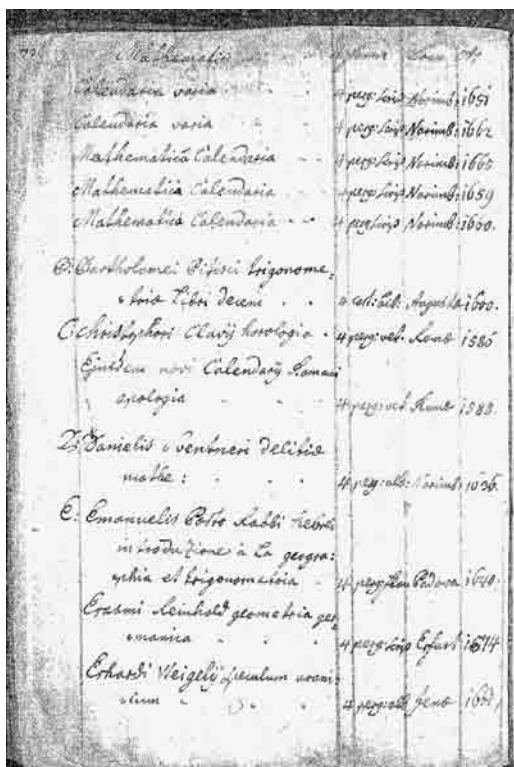 Mathematici 4 Forma Loco A͠o
Calendaria varia 4 perg: scrip Norimb: 1651
Calendaria varia 4 perg: scrip Norimb: 1662
Mathematica Calendaria 4 perg: scrip Norimb: 1665
Mathematica Calendaria 4 perg: scrip Norimb: 1659
Mathematica Calendaria 4 perg: scrip Norimb: 1660.
B: Bartholomei Pitisci trigonome:
tria Libri decem 4 Augusta 1600.
C: Christophori Clavij horologia 4 perg: vet. Roma 1586
Ejusdem novi Calendarij Romani
apologia 4 perg: vet Roma 1588.
D: Danielis Swentneri delitiæ
mathe: 4 perg: alb: Norimb: 1636.
E: Emanuelis Porto Rabbi hebrei
introduzione à la geogra:
phia et trigonometria 4 perg: Padova 1640.
Erasmi Reinhold geometria ger
manica 4 perg: scrip Erfurt 1574
Erhardi Weigelij speculum uran:
4 perg: alb Jena 1661